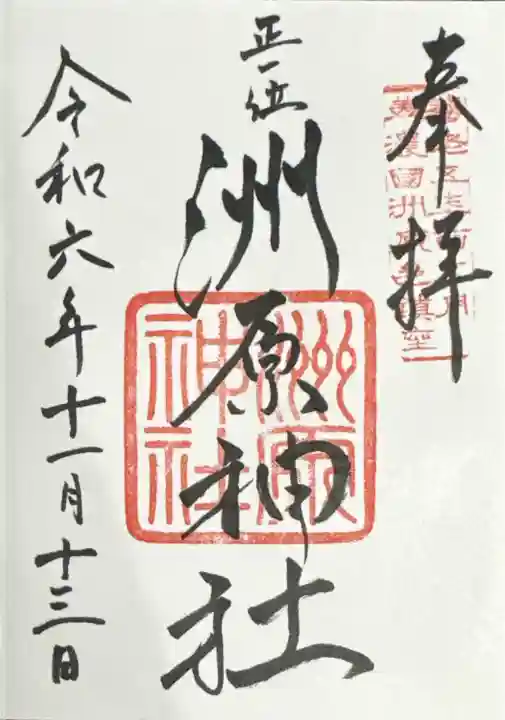 奉拝
正一位
洲原神社
洲原
神社
令和六年十一月十三日